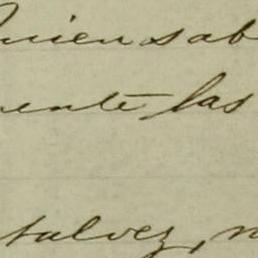 Quien sab
ente las
talvez, n